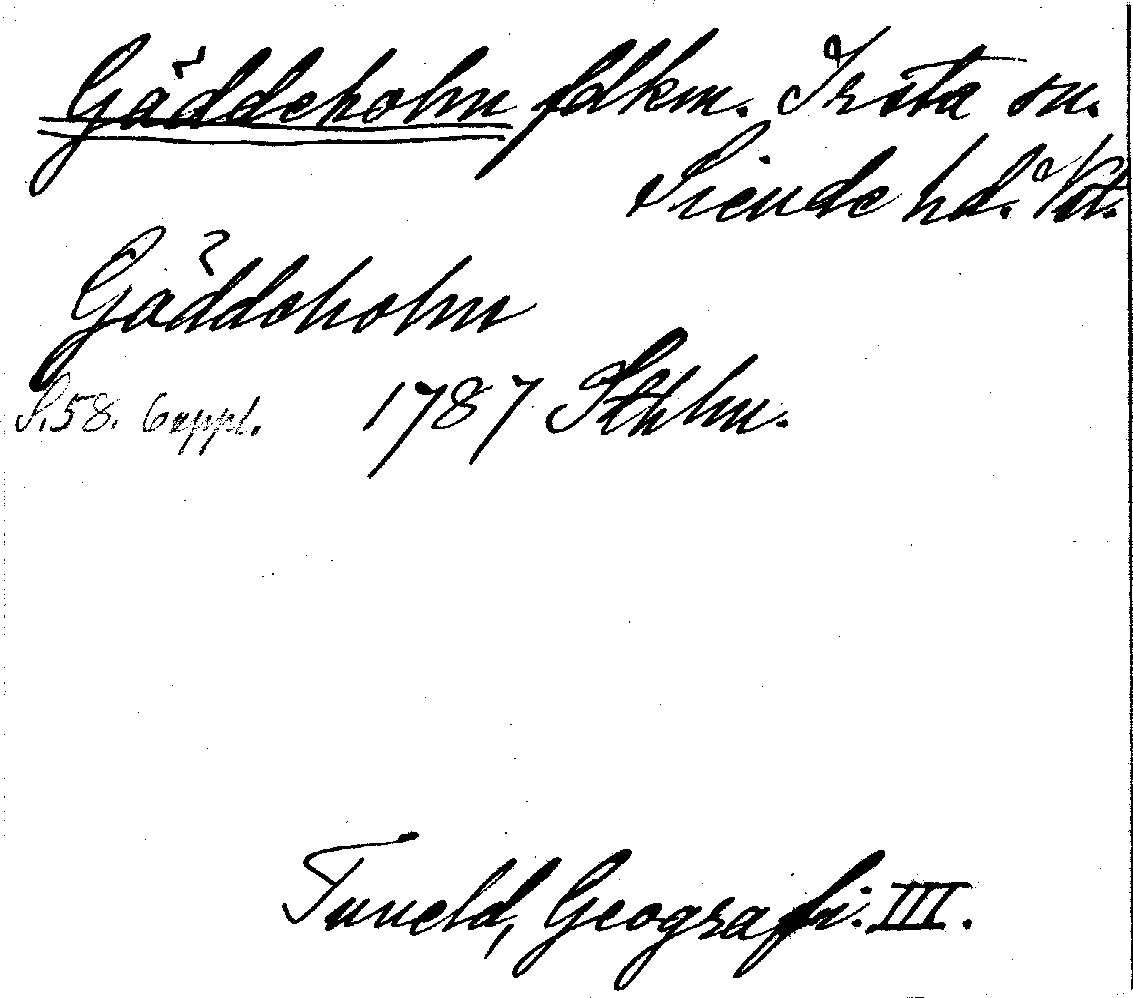 Gäddeholm fdkm. Irsta sn.
Siende hd. Vstm.
Gäddeholm
S. 58. 6 uppl. 1787 Sthlm.
Tuneld, Geografi. III.